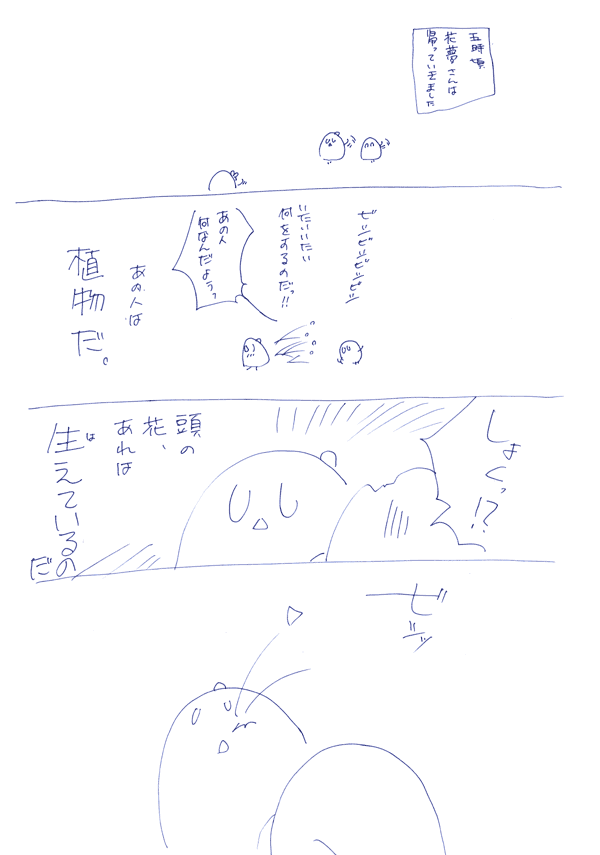 五時頃
花夢さんは
帰っていきました
ビシビシビシビシ
いたいいたい
何をするのだっ!!
あの人
何なんだようっ
あの人は
植物だ。
しょくっ!?
頭の
花、
あれは
生えているの
だ
ビシッ